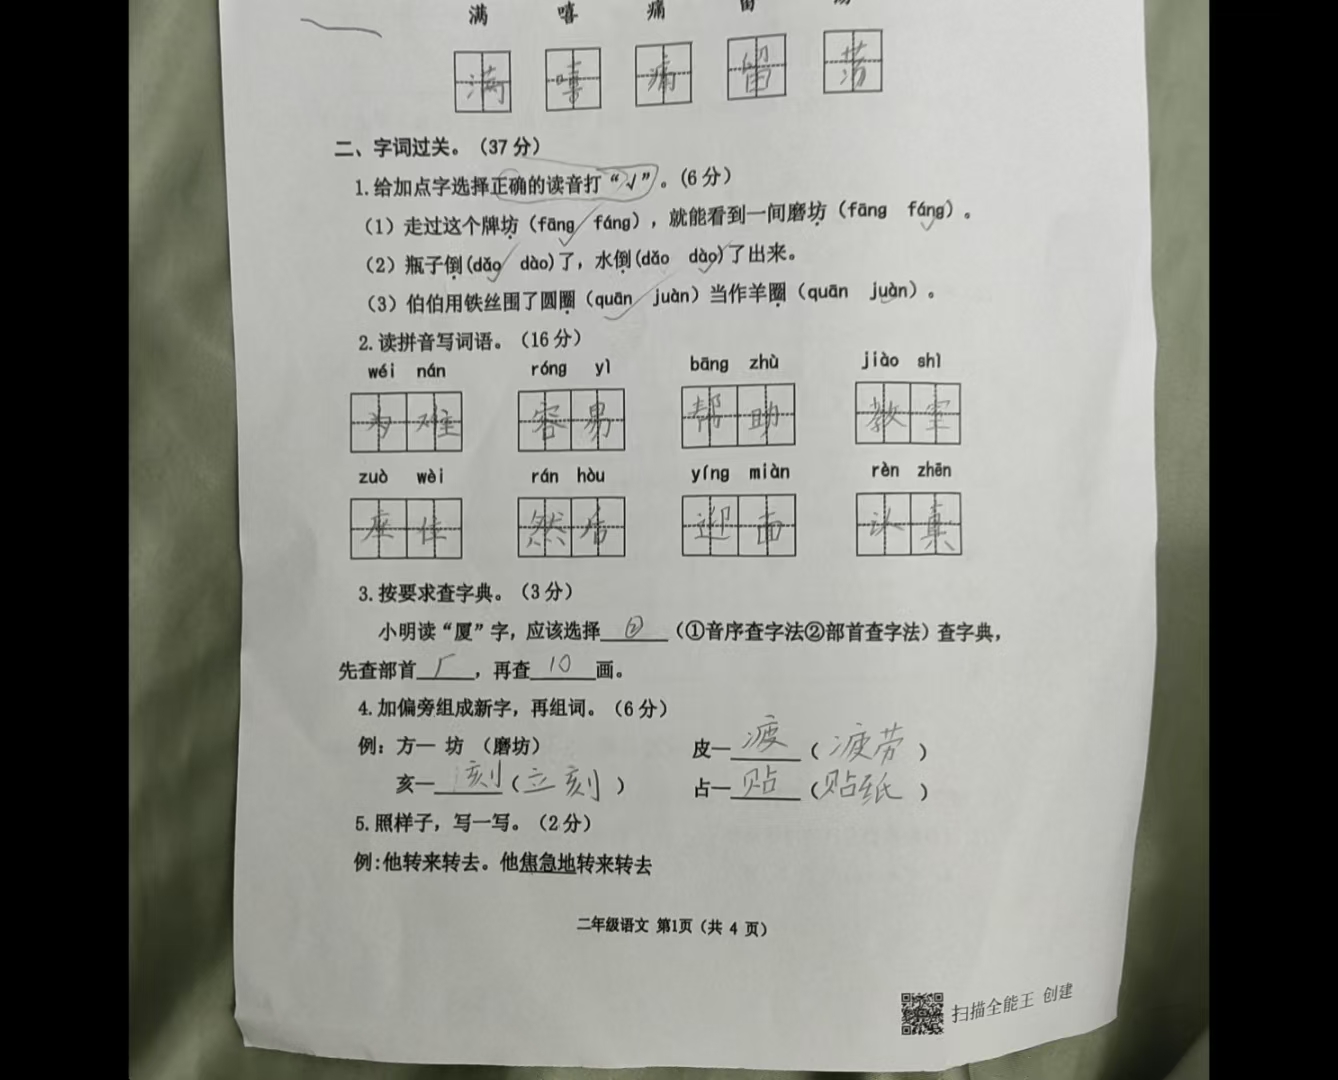 满 嘻 痛 留
满 嘻 痛 留 荡
二、字词过关。（37分）
1.给加点字选择正确的读音打“√”。(6分）
（1）走过这个牌坊（fāng✓ fáng），就能看到一间磨坊（fāng fáng✓）。
（2）瓶子倒(dǎo✓ dào)了，水倒(dǎo dào✓)了出来。
（3）伯伯用铁丝围了圆圈（quān✓ juàn）当作羊圈（quān juàn✓）。
2.读拼音写词语。（16分）
wéi nán róng yì bāng zhù jiào shì
为难 容易 帮助 教室
zuò wèi rán hòu yíng miàn rèn zhēn
座位 然后 迎面 认真
3.按要求查字典。（3分）
小明读“厦”字，应该选择②（①音序查字法②部首查字法）查字典，
先查部首厂，再查10画。
4.加偏旁组成新字，再组词。（6分）
例：方— 坊 （磨坊） 皮—疲（疲劳）
亥—刻（立刻） 占—贴（贴纸）
5.照样子，写一写。（2分）
例:他转来转去。他焦急地转来转去
二年级语文 第1页（共 4 页）
扫描全能王 创建